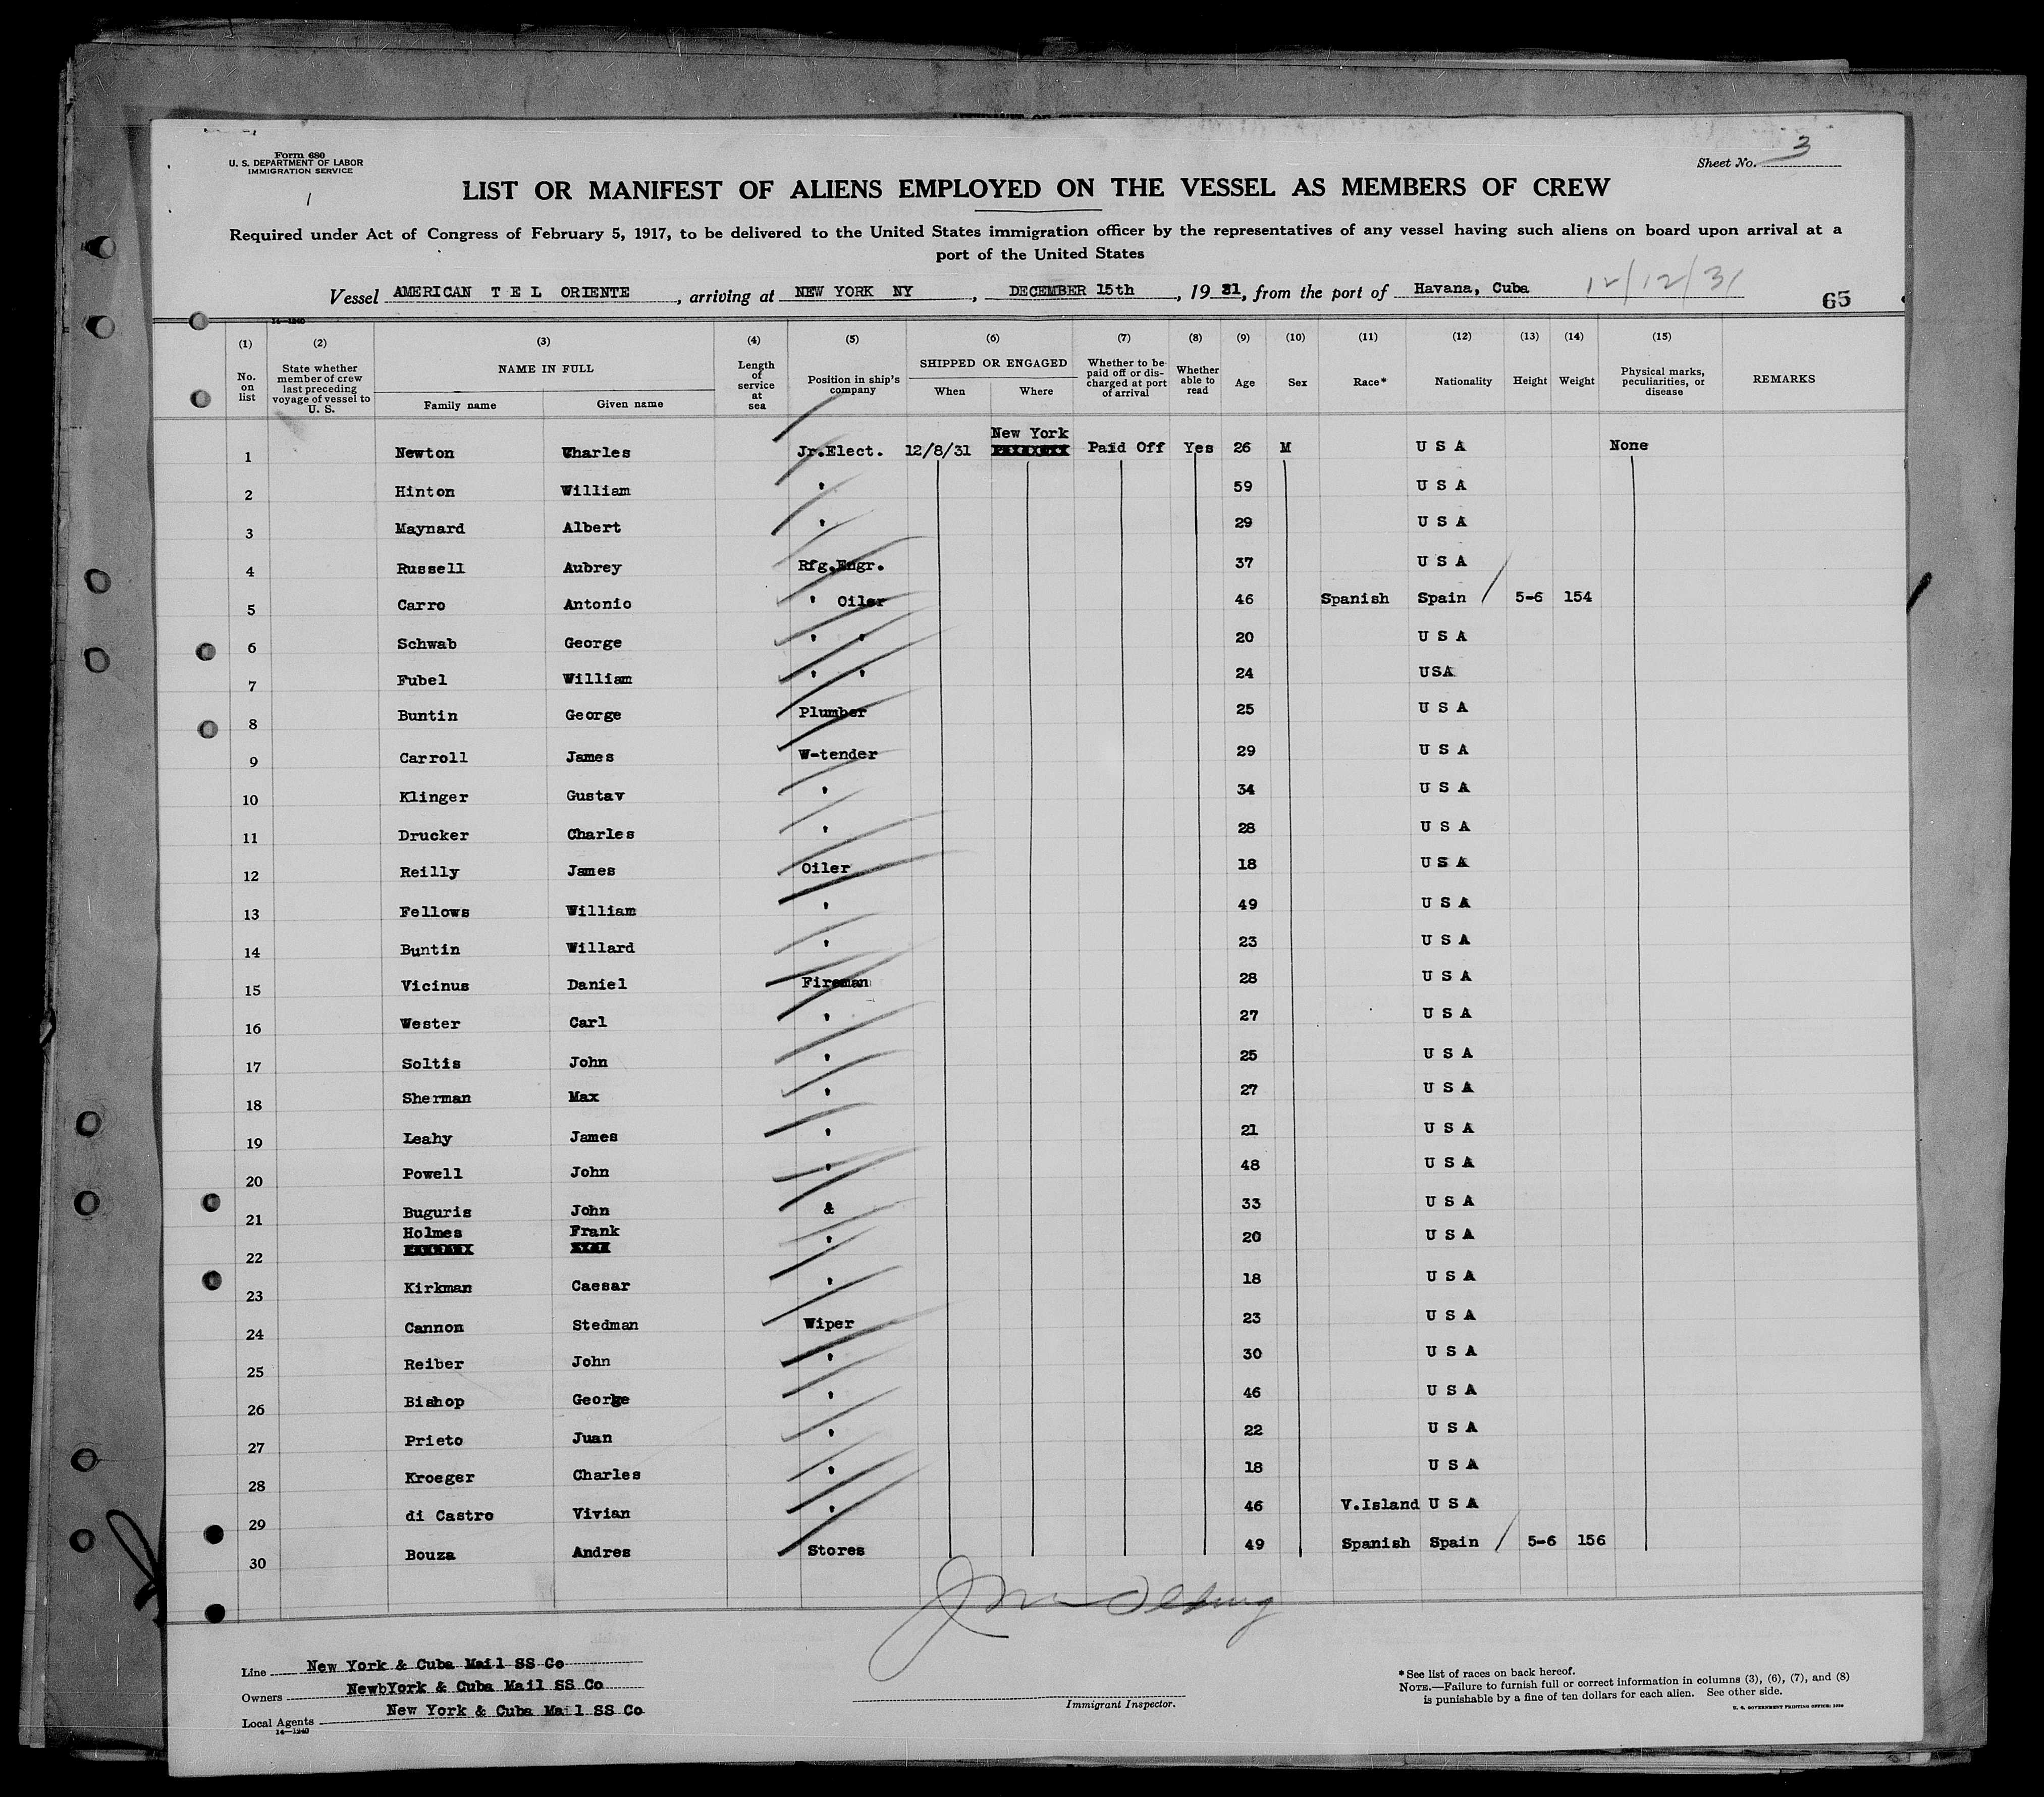 Form 680
U. S. DEPARTMENT OF LABOR
IMMIGRATION SERVICE
1
Sheet No. 3
LIST OR MANIFEST OF ALIENS EMPLOYED ON THE VESSEL AS MEMBERS OF CREW
Required under Act of Congress of February 5, 1917, to be delivered to the United States immigration officer by the representatives of any vessel having such aliens on board upon arrival at a
port of the United States
Vessel AMERICAN T E L ORIENTE, arriving at NEW YORK NY, DECEMBER 15th, 19 31, from the port of Havana, Cuba 12/12/31
65
14—1240
(1) (2) (3) (4) (5) (6) (7) (8) (9) (10) (11) (12) (13) (14) (15)
No. on list State whether member of crew last preceding voyage of vessel to U. S. NAME IN FULL Family name Given name Length of service at sea Position in ship's company SHIPPED OR ENGAGED When Where Whether to be paid off or discharged at port of arrival Whether able to read Age Sex Race* Nationality Height Weight Physical marks, peculiarities, or disease REMARKS
1 Newton Charles Jr.Elect. 12/8/31 New York Paid Off Yes 26 M U S A None
2 Hinton William ' 59 U S A
3 Maynard Albert ' 29 U S A
4 Russell Aubrey Rfg.Engr. 37 U S A
5 Carro Antonio ' Oiler 46 Spanish Spain / 5-6 154
6 Schwab George ' ' 20 U S A
7 Fubel William ' ' 24 USA
8 Buntin George Plumber 25 U S A
9 Carroll James W-tender 29 U S A
10 Klinger Gustav ' 34 U S A
11 Drucker Charles ' 28 U S A
12 Reilly James Oiler 18 U S A
13 Fellows William ' 49 U S A
14 Buntin Willard ' 23 U S A
15 Vicinus Daniel Fireman 28 U S A
16 Wester Carl ' 27 U S A
17 Soltis John ' 25 U S A
18 Sherman Max ' 27 U S A
19 Leahy James ' 21 U S A
20 Powell John ' 48 U S A
21 Buguris John & 33 U S A
22 Holmes Frank ' 20 U S A
23 Kirkman Caesar ' 18 U S A
24 Cannon Stedman Wiper 23 U S A
25 Reiber John ' 30 U S A
26 Bishop George ' 46 U S A
27 Prieto Juan ' 22 U S A
28 Kroeger Charles ' 18 U S A
29 di Castro Vivian ' 46 V.Island U S A
30 Bouza Andres Stores 49 Spanish Spain / 5-6 156
Line New York & Cuba Mail SS Co
Owners NewbYork & Cuba Mail SS Co
Local Agents New York & Cuba Mail SS Co
14—1240
Immigrant Inspector.
*See list of races on back hereof.
NOTE.—Failure to furnish full or correct information in columns (3), (6), (7), and (8)
is punishable by a fine of ten dollars for each alien. See other side.
U. S. GOVERNMENT PRINTING OFFICE: 1930